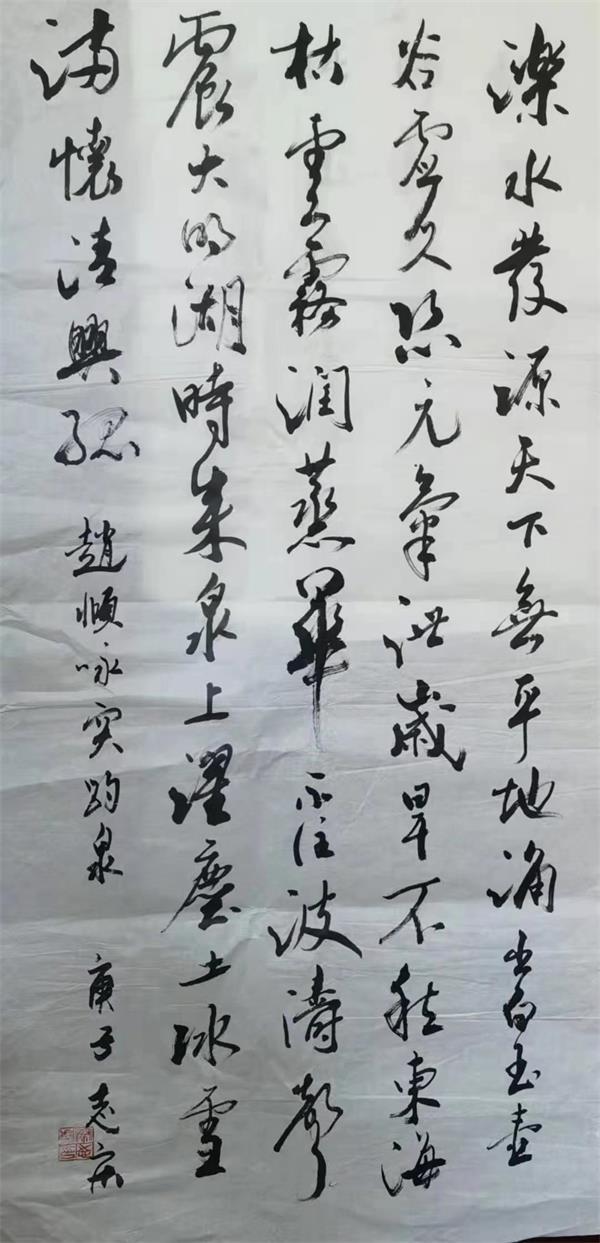 濼水發源天下無平地涌出白玉壺
谷虛久恐元氣泄歲旱不愁東海
枯雲霧潤蒸華不注波濤聲
震大明湖時來泉上濯塵土冰雪
滿懷清興孤 趙頫咏突趵泉 庚子志